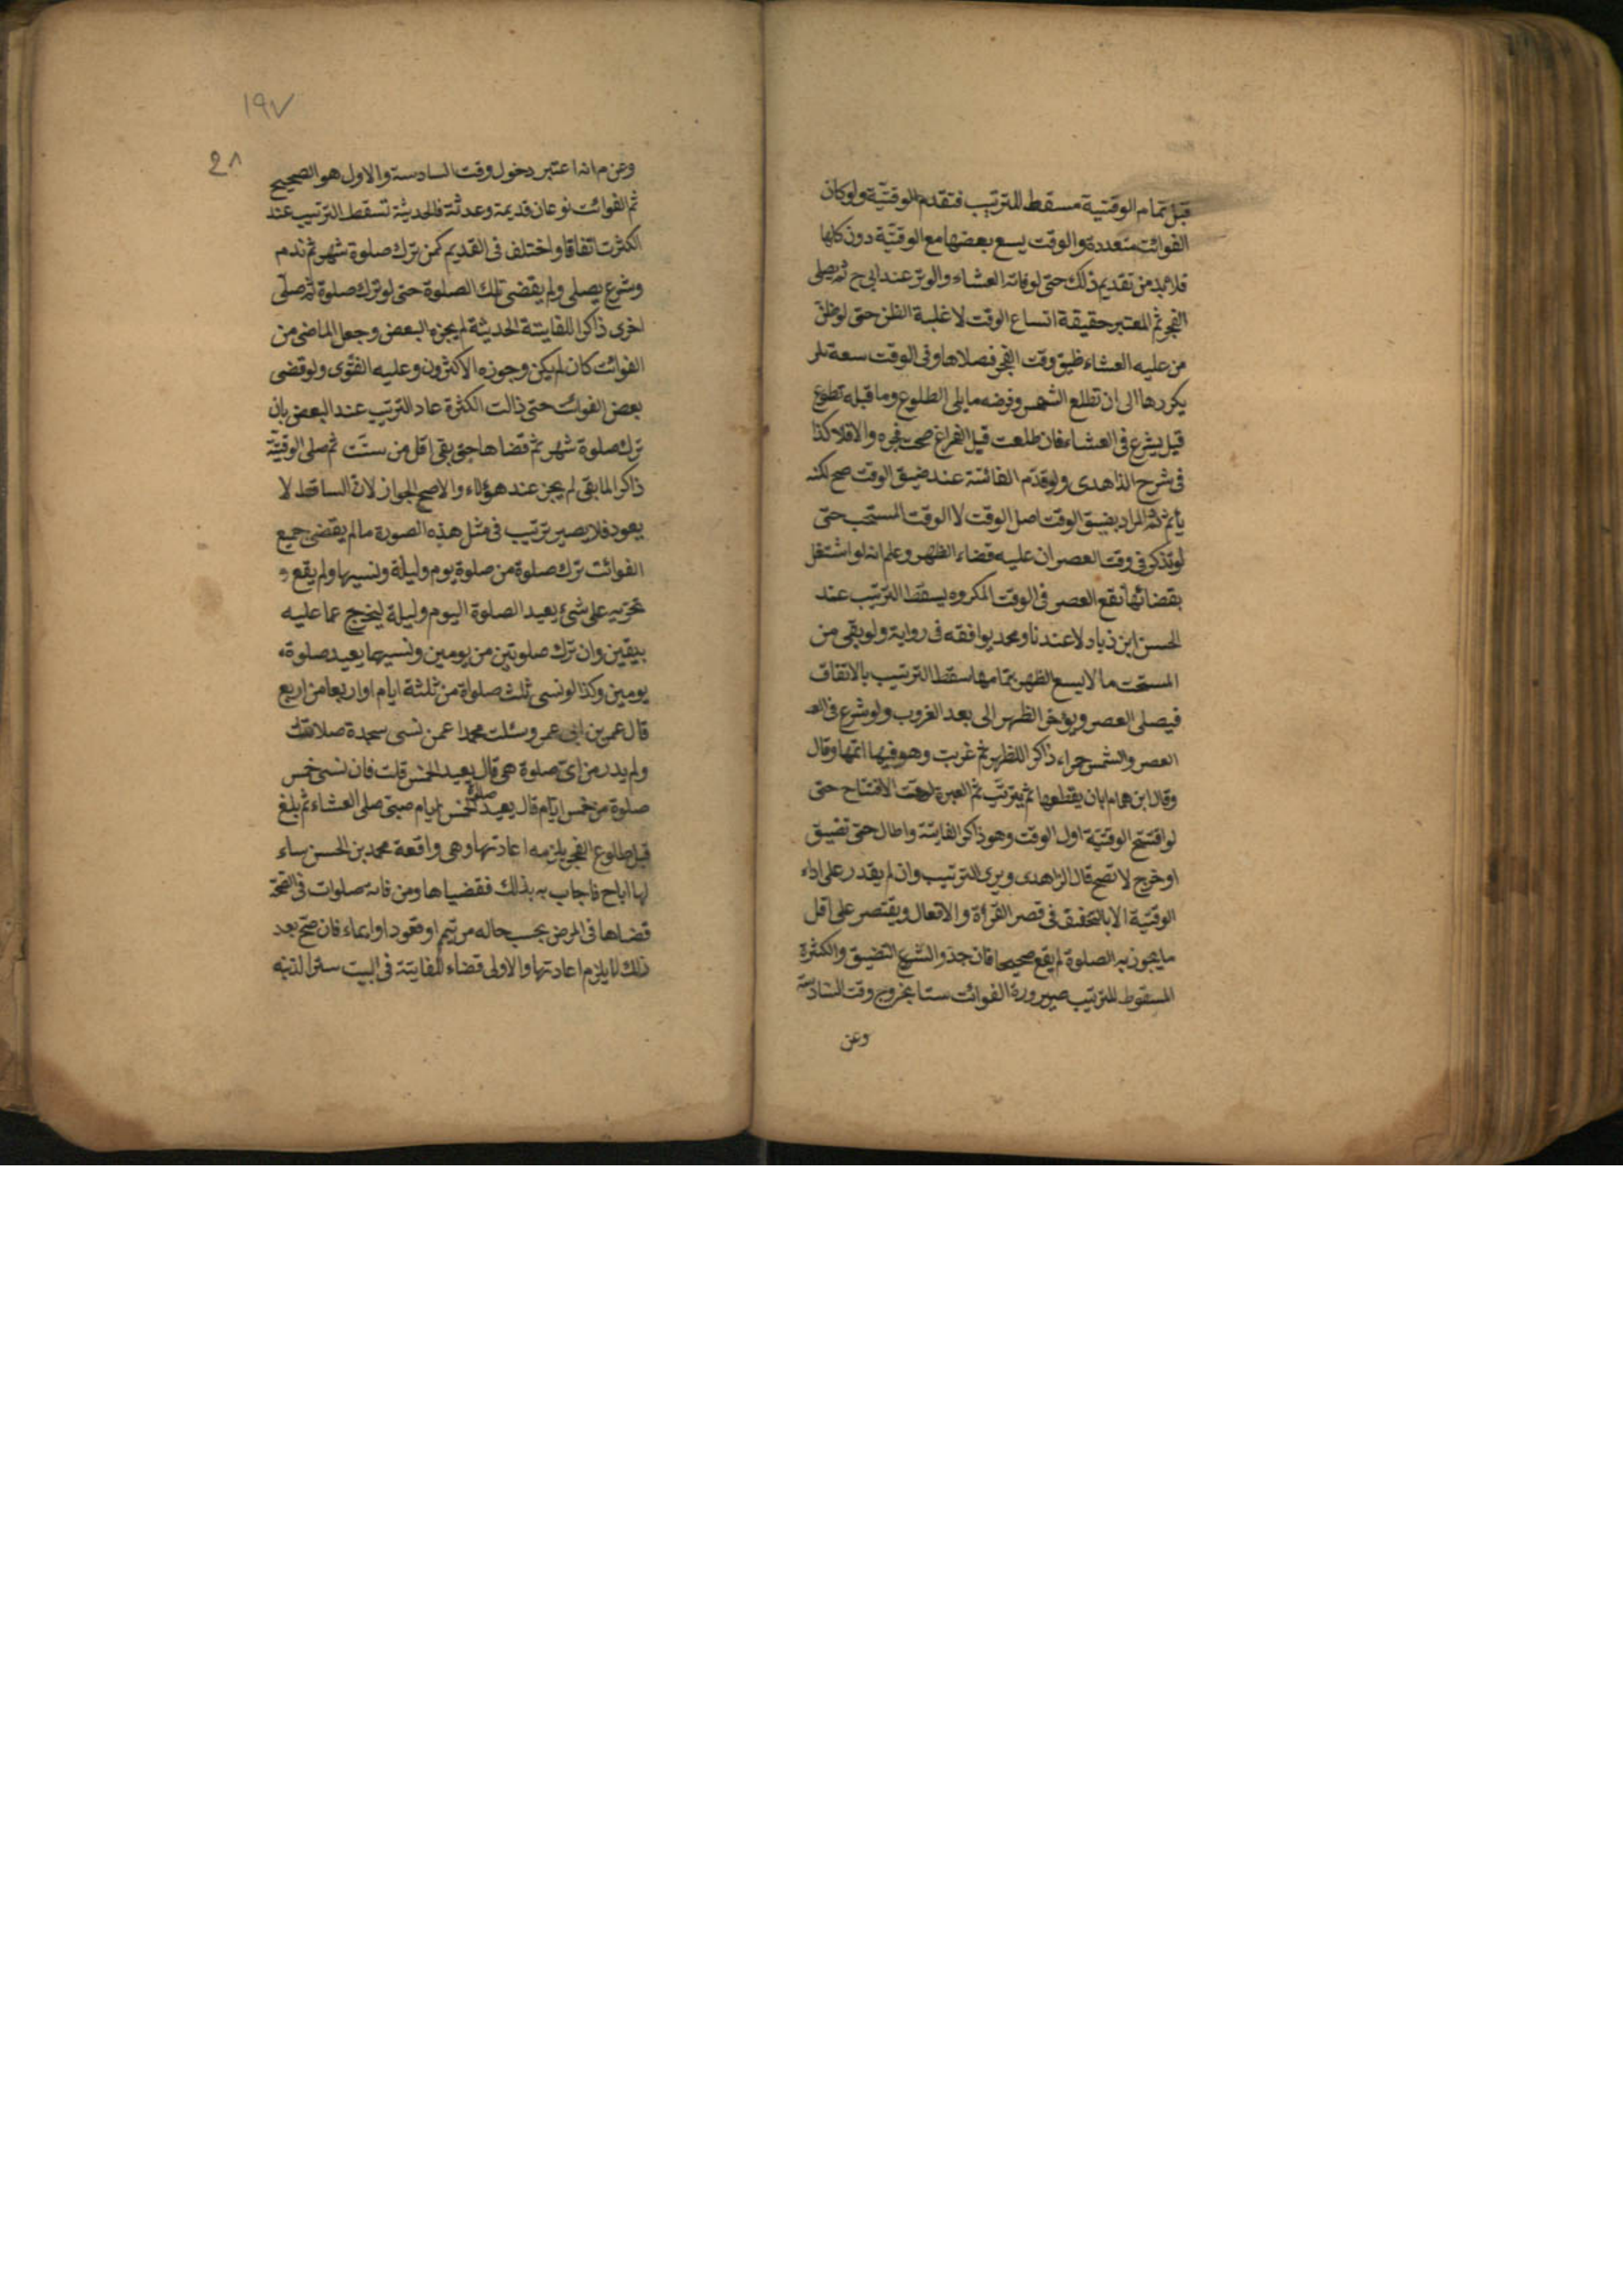 قبل تمام الوقتية مسقط للترتيب فتقدم الوقتية ولو كان
الفوائت متعددة والوقت يسع بعضها مع الوقتية دون كلها
فلا بد من تقديم ذلك حتى لو فاته العشاء والوتر عند ابي ح ثم يصلى
الفجر ثم المعتبر حقيقة اتساع الوقت لا غلبة الظن حتى لو ظن
من عليه العشاء ضيق وقت الفجر فصلاها وفى الوقت سعة
يكررها الى ان تطلع الشمس وفرضه ما يلى الطلوع وما قبله تطوع
قيل يشرع فى العشاء فان طلعت قبل الفراغ صح فجره والا فلا كذا
فى شرح الذاهدى ولو قدم الفائتة عند ضيق الوقت صح لكنه
يأثم ثم المراد بضيق الوقت اصل الوقت لا الوقت المستحب حتى
لو تذكر فى وقت العصر ان عليه قضاء الظهر وعلم انه لو اشتغل
بقضائها تقع العصر فى الوقت المكروه يسقط الترتيب عند
الحسن ابن زياد لا عندنا ومحمد يوافقه فى رواية ولو بقى من
المستحب ما لا يسع الظهر بتمامها سقط الترتيب بالاتفاق
فيصلى العصر ويؤخر الظهر الى بعد الغروب ولو شرع فى
العصر والشمس حمراء ذاكرا للظهر ثم غربت وهو فيها اتمها وقال
وقال ابن همام بان يقطعها ثم يترتب ثم العبرة لوقت الافتتاح حتى
لو افتتح الوقتية اول الوقت وهو ذاكر الفايتة واطال حتى تضيق
او خرج لا تصح قال الزاهدى ويرى الترتيب وان لم يقدر على اداء
الوقتية الا بالتخفيف فى قصر القرأة والافعال ويقتصر على اقل
ما يجوز به الصلوة لم يقع صحيحا التضيق والكثرة
المسقوط للترتيب صيرورة الفوائت ستا بخروج وقت السادسة
وعن
١٩٧
وعن م انه اعتبر دخول وقت السادسة والاول هو الصحيح
ثم الفوائت نوعان قديمة وحديثة فالحديثة تسقط الترتيب عند
الكثرت اتفاقا واختلف فى القديم كمن ترك صلوة شهر ثم ندم
وشرع يصلى ولم يقضى تلك الصلوة حتى لو ترك صلوة ثم صلى
اخرى ذاكرا للفايتة الحديثة لم يجزه البعض وجعل الماضى من
الفوائت كان لم يكن وجوزه الاكثرون وعليه الفتوى ولو قضى
بعض الفوائت حتى ذالت الكثرة عاد الترتيب عند البعض بان
ترك صلوة شهر ثم قضاها حتى بقى اقل من ست ثم صلى الوقتية
ذاكرا لما بقى لم يجز عند هؤلاء والاصح الجواز لان الساقط لا
يعود فلا يصير ترتيب فى مثل هذه الصورة ما لم يقضى جميع
الفوائت ترك صلوة من صلوة يوم وليلة ونسيها ولم يقع
تحريه على شئ يعيد الصلوة اليوم وليلة ليخرج عما عليه
بيقين وان ترك صلوتين من يومين ونسيهما يعيد صلوة
يومين وكذا لو نسى ثلث صلواة من ثلثة ايام او اربعا من اربع
قال عمر بن ابى عمر وسئلت محمدا عمن نسى سجدة صلاتية
ولم يدر من اى صلوة هى قال يعيد الخمس قلت فان نسى خمس
صلوة من خمس ايام قال يعيد صلوة الخمس ايام صبى صلى العشاء ثم بلغ
قبل طلوع الفجر يلزمه اعادتها وهى واقعة محمد بن الحسن ساء
لها اباح فاجاب به بذلك فقضيها ومن فاته صلوات فى الصحة
قضاها فى المرض بحسب حاله من تيمم او قعود او ايماء فان صح بعد
ذلك لا يلزم اعادتها والاولى قضاء للفايتة فى البيت سترا لذنبه